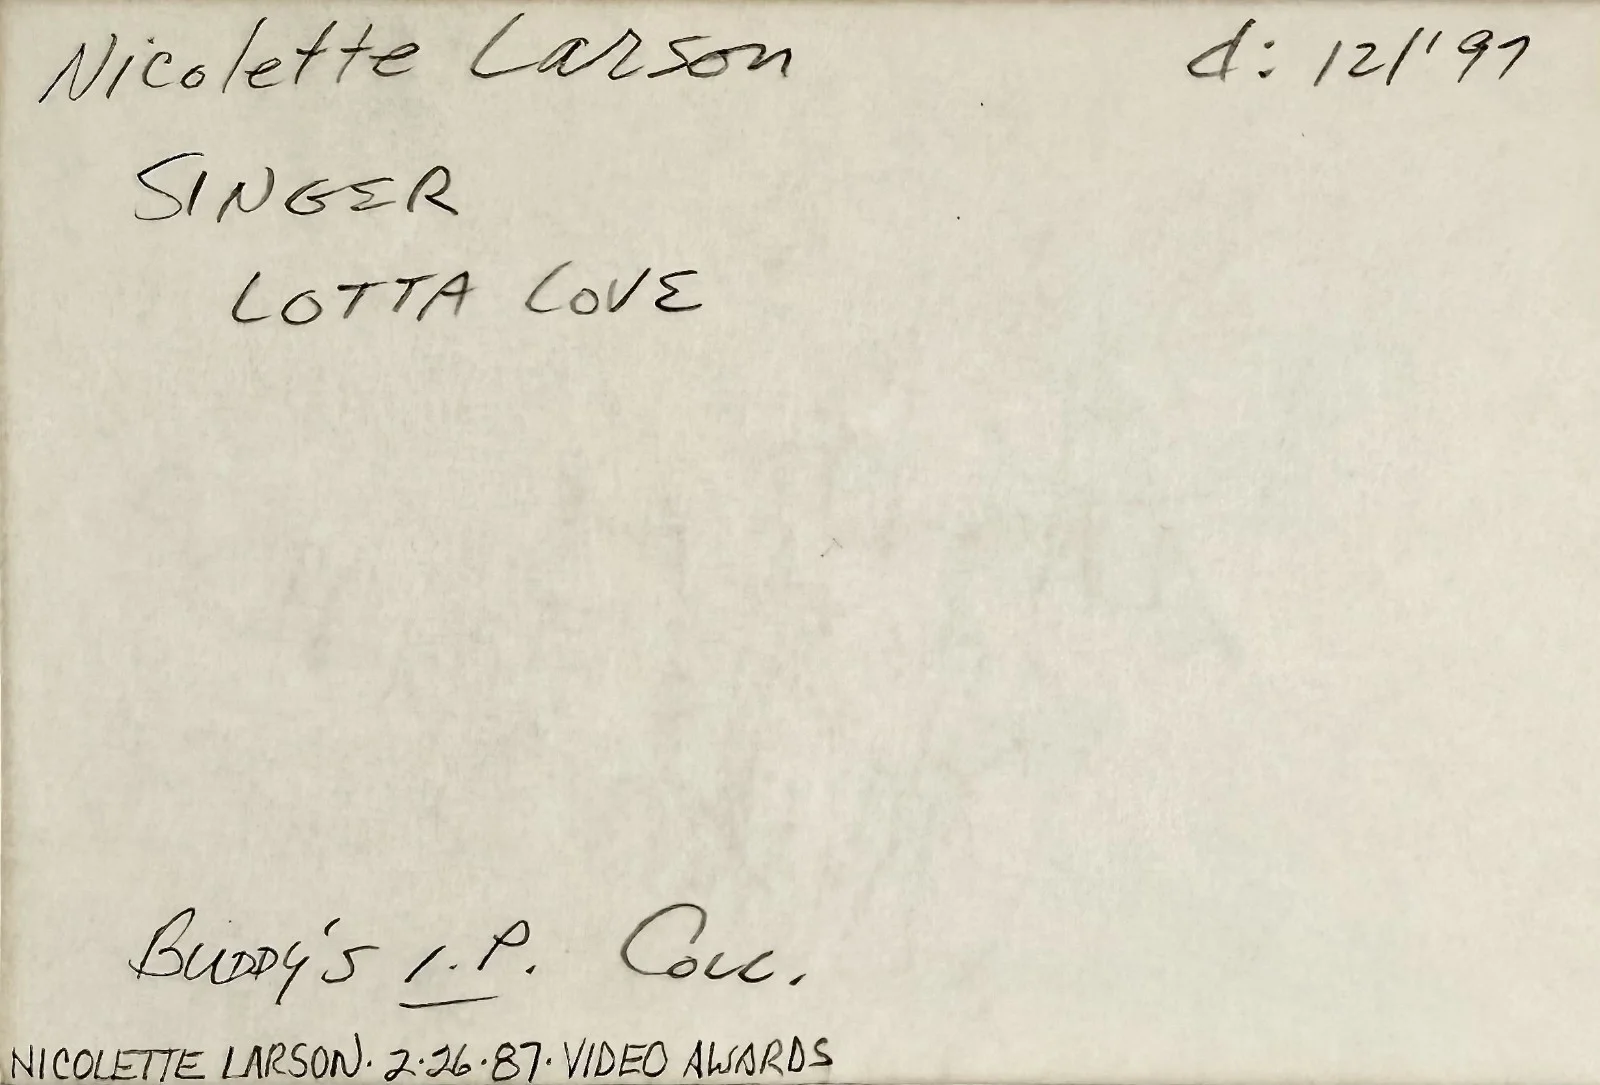 Nicolette Larson d: 12/'97
SINGER
LOTTA LOVE
BUDDY'S I.P. COLL.
NICOLETTE LARSON. 2.26.87. VIDEO AWARDS